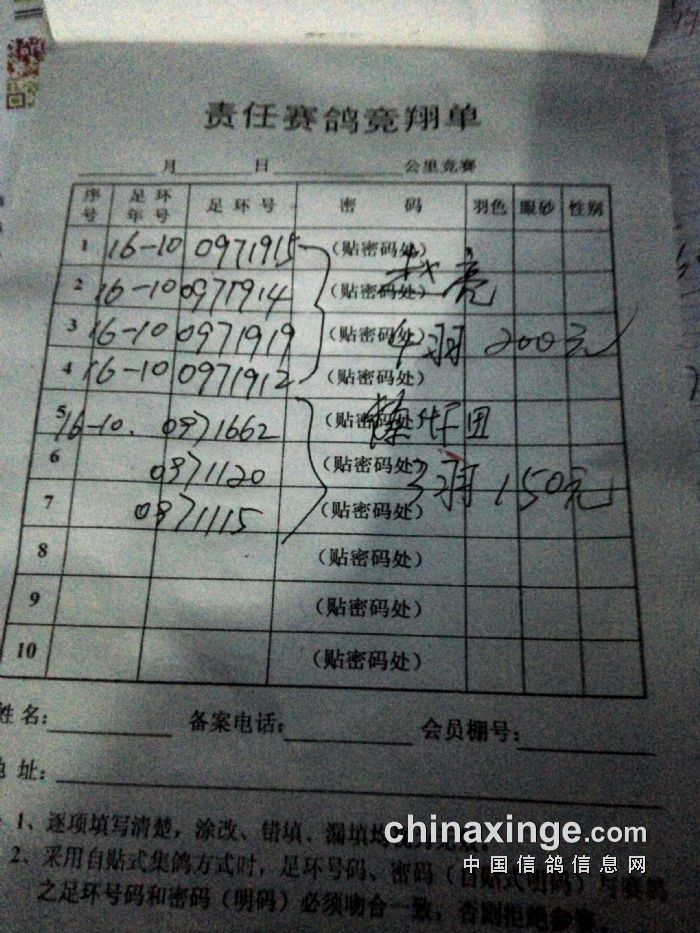 责任赛鸽竞翔单
月 日 公里竞赛
序号 足环年号 足环号 密码 羽色 眼砂 性别
1 16-10 0971915 (贴密码处)
2 16-10 0971914 (贴密码处) 亮
3 16-10 0971919 (贴密码处) 4羽 200元
4 16-10 0971912 (贴密码处)
5 16-10. 0971662 (贴密码处)
6 0971120 (贴密码处) 3羽 150元
7 0971115 (贴密码处)
8 (贴密码处)
9 (贴密码处)
10 (贴密码处)
姓名: 备案电话: 会员棚号:
地址:
1、逐项填写清楚,涂改、错填、漏填
2、采用自贴式集鸽方式时,足环号码、密码(自贴式明码)与赛鸽
之足环号码和密码(明码)必须吻合一致,否则拒绝参赛。
chinaxinge.com
中国信鸽信息网